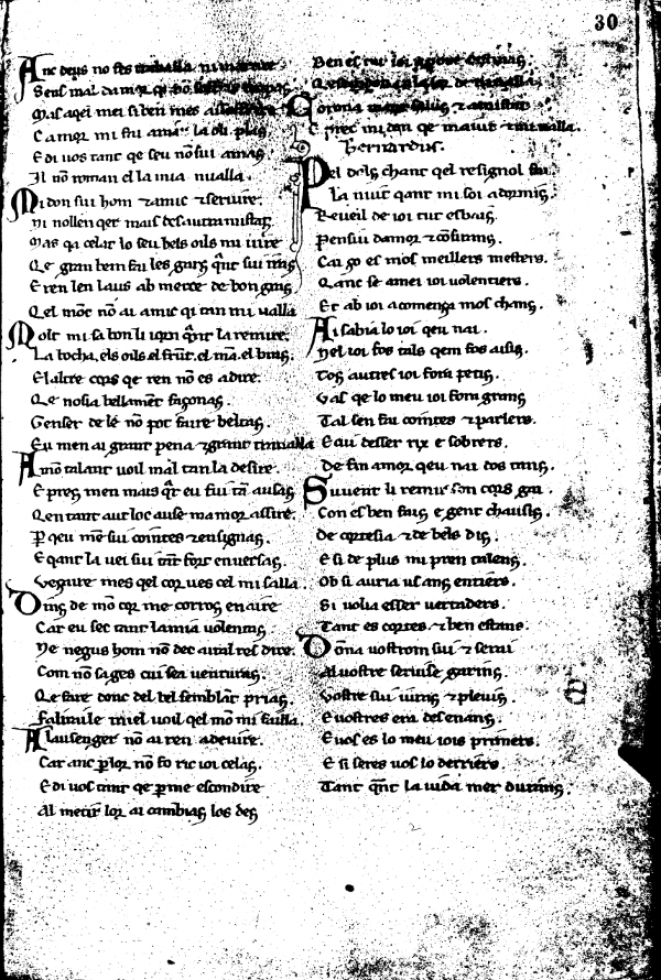 30
Anc deus no fes
Senes mal damor qi nō
Mas aqel mei si ben mes
Camor mi fui ama la ou plag
E di uos tant qe seu nō fui amag
Il nō roman el la mia nualla.
Midon sui hom & amic & seruire.
Ni nollen qer mais
Mas qi celat lo seu bels oils mi uire
Qe gran bem fai les garz qnt sui
E ren len laus ab merce de bon grag
Qel mōt nō ai amic qi tan mi ualla
Molt mi sa bon li iorn qnt la remire.
La bocha. els oils. el frūt. el mā. el brag.
Elaltre cors qe ren nō es adire.
Qe nosia bellamēt façonag.
Genser de lé nō poc faire beltag.
Eu men ai grant pena & grant trauialla
A mō talant uoil mal tan la desire.
E preg men mais qar eu fui tā ausag
Qen tant aut loc ause ma mor assire.
P qeu mē sui cointes & ensignag.
E qant la uei sui tāt fort enuersag.
Veiaire mes qel cor ues cel mi salla.
Ding de mō cor me corrog en aire
Car eu sec tant la mia uolentag.
Ne negus hom nō dec aital res dire.
Com nō sages cui sea uenturag.
Qe faire donc del bel semblāt priag.
Falirai le miel uoil qel mō mi failla.
A lausenger nō ai ren a deuire.
Car anc p lor nō fo ric ioi celag.
E di uos tant qe p me escondire
Al metir lor ai cambiag los deg
Ben es
Corona & amistat
E prec midon qe maiut
Bernardus.
Pel dolz chant qel resignol fai
La nuit qant mi soi adormig.
Reueil de ioi tut esbaig.
Pensiu damor & cōsirang.
Car zo es mos meillers mesters.
Qanc se amei ioi uolentiers.
Et ab ioi acomenza mos chang.
Ai sabia lo ioi qeu nai.
Nel ioi fos tals qem fos ausig.
Tog autres ioi fora petig.
Vas qe lo meu ioi fora grang
Tal sen fai cointes & parlers.
E cau desser rix e sobrers.
De fin amor qeu nai dos tang.
Suuent li remir son cors gai.
Con es ben faig e gent chausig.
De cortesia & de bels dig.
E si de plus mi pren taleng.
Ob si auria us ang entiers.
Si uolia esser uertaders.
Tant es cortes. & ben estans.
Dōna uostrom sui & serai
Al uostre seruise garnig.
Vostre sui iuraz & pleuig.
E uostres era desenang.
E uos es lo meu iois primers.
E si seres uos lo derriers.
Tant qnt la uida mer durang.